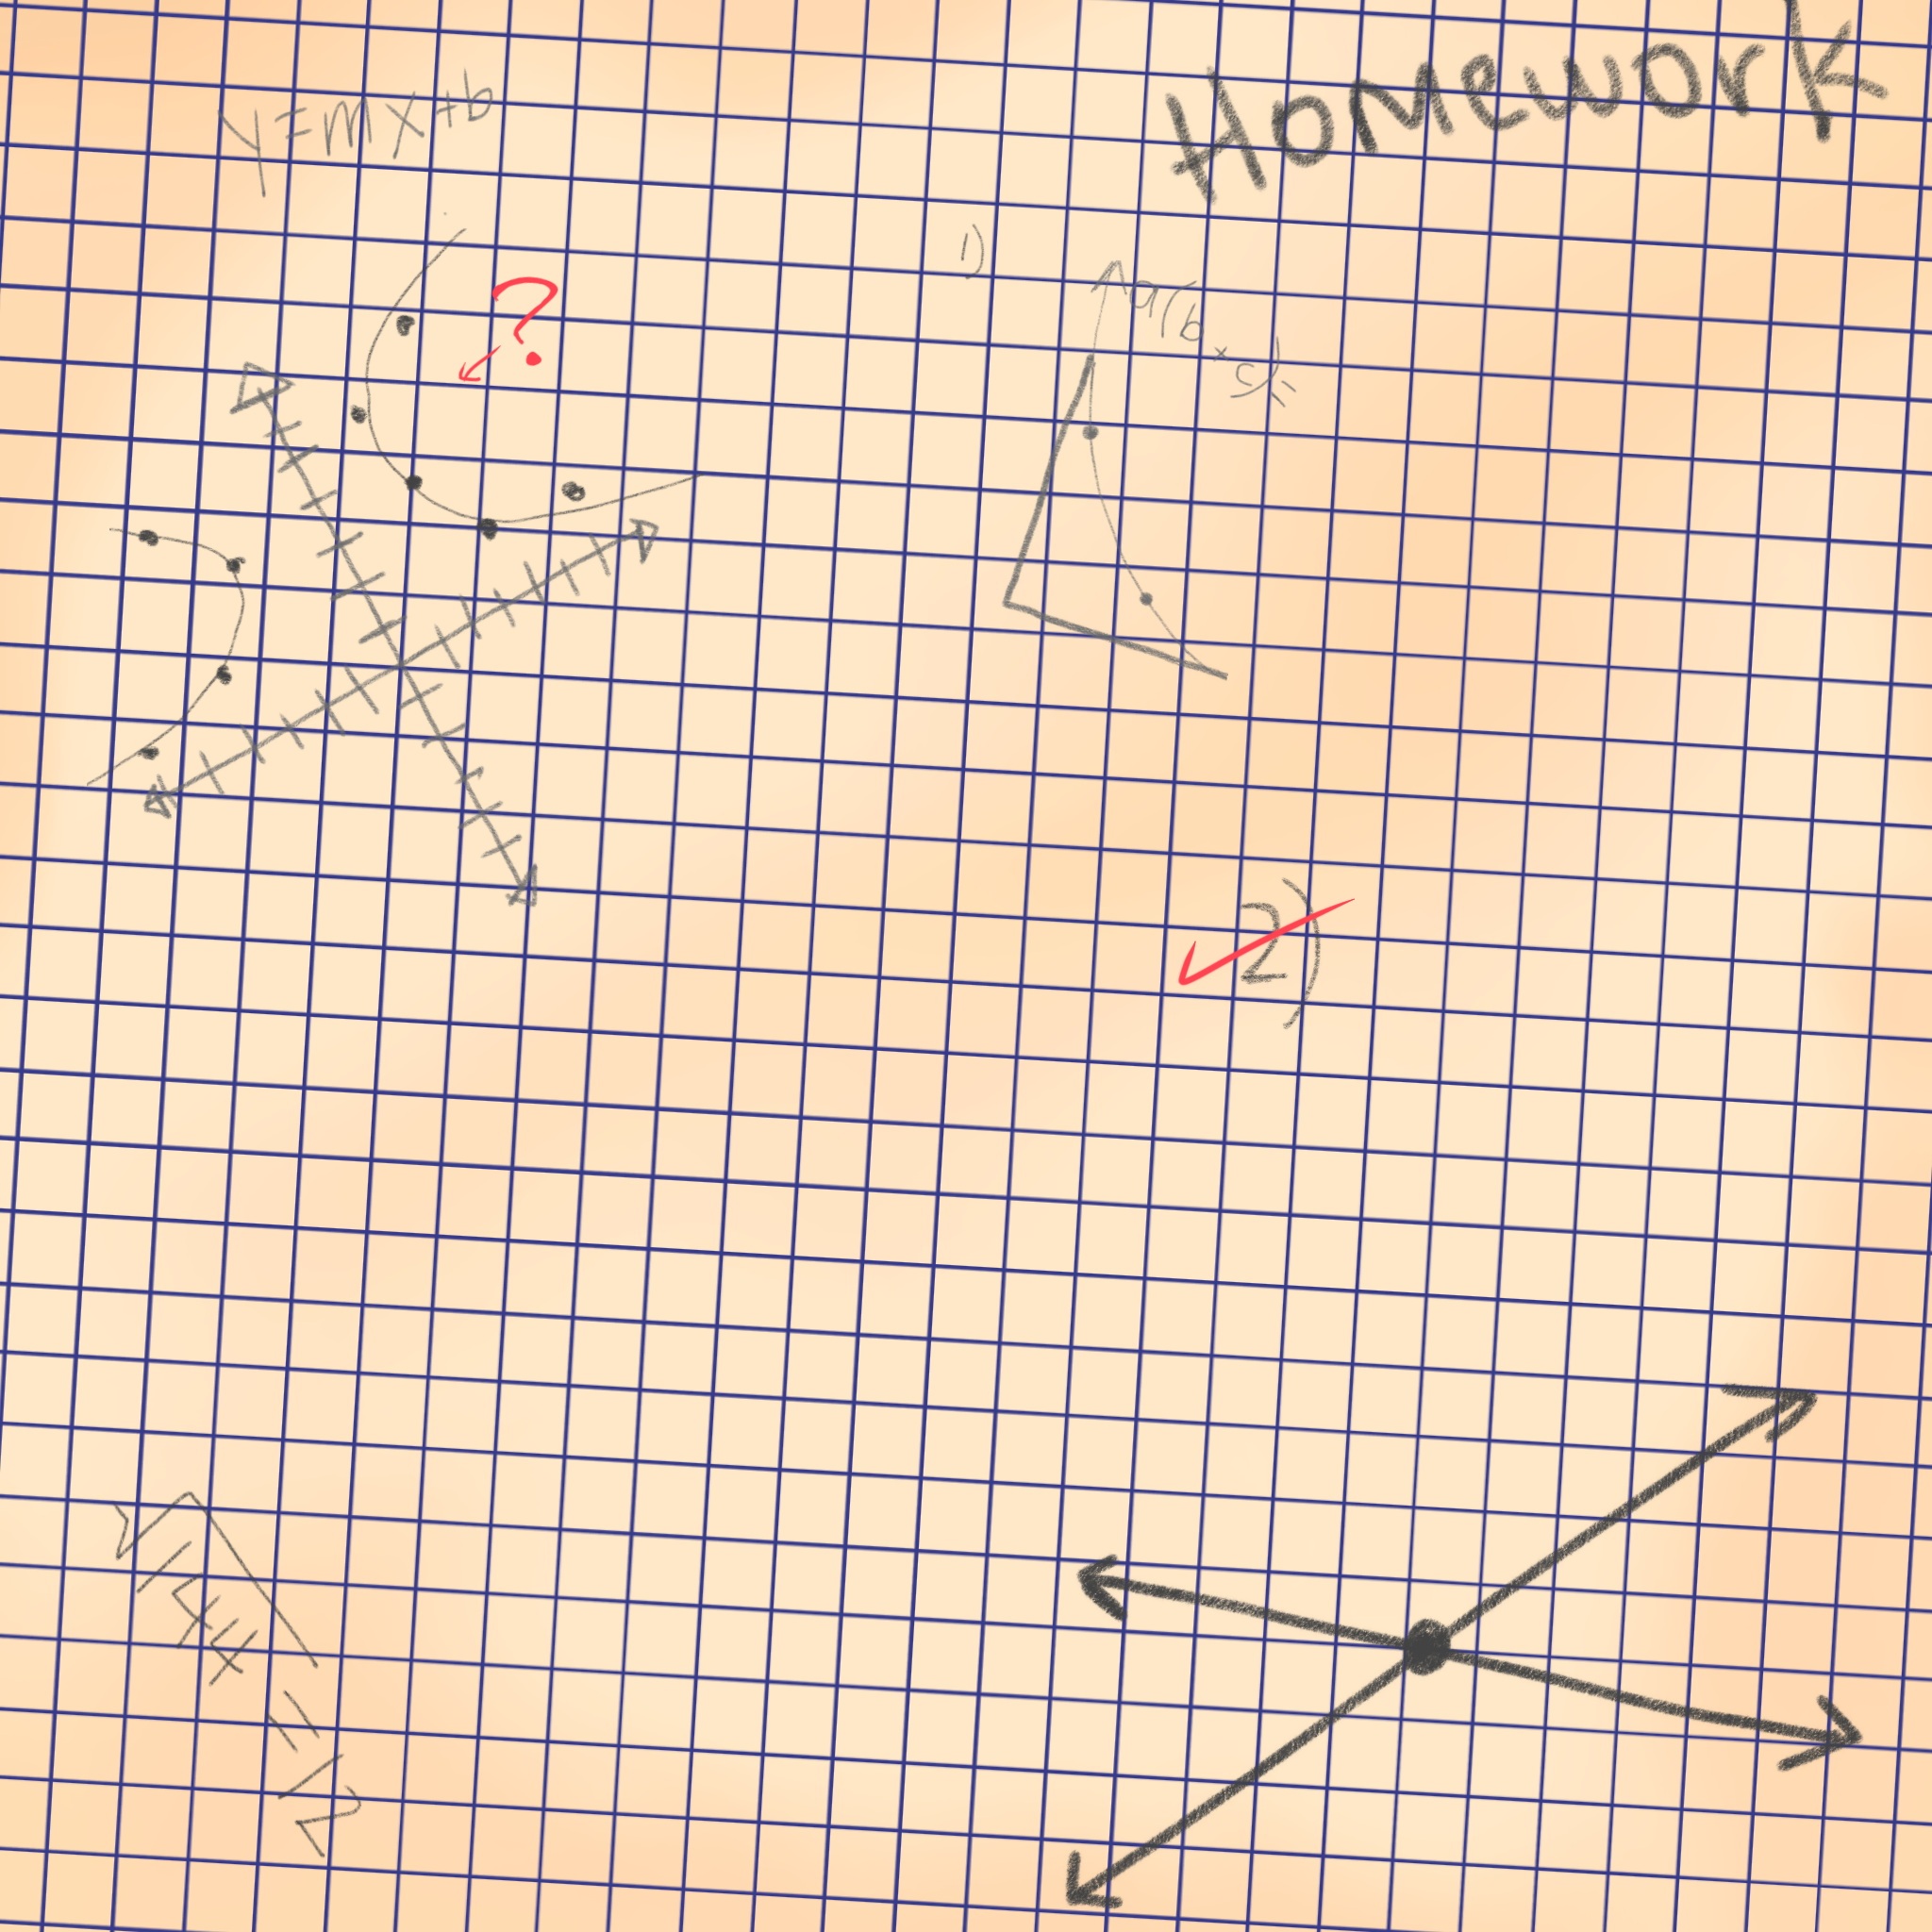 Homework
y=mx+b
?
1)
a(b×c)=
2)
√144 = 12